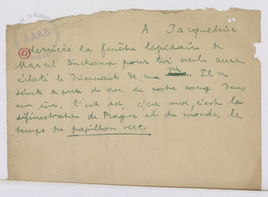 A Jacqueline
derrière la fenêtre lapidaire de
Marcel Duchamp pour toi seule aura
éclaté le Diamant de ma vie. Il se
à perte de vue de notre sang dans
un. C'est toi, c'est moi, c'est la
défenestration de Prague et du monde, le
temps du papillon vert.